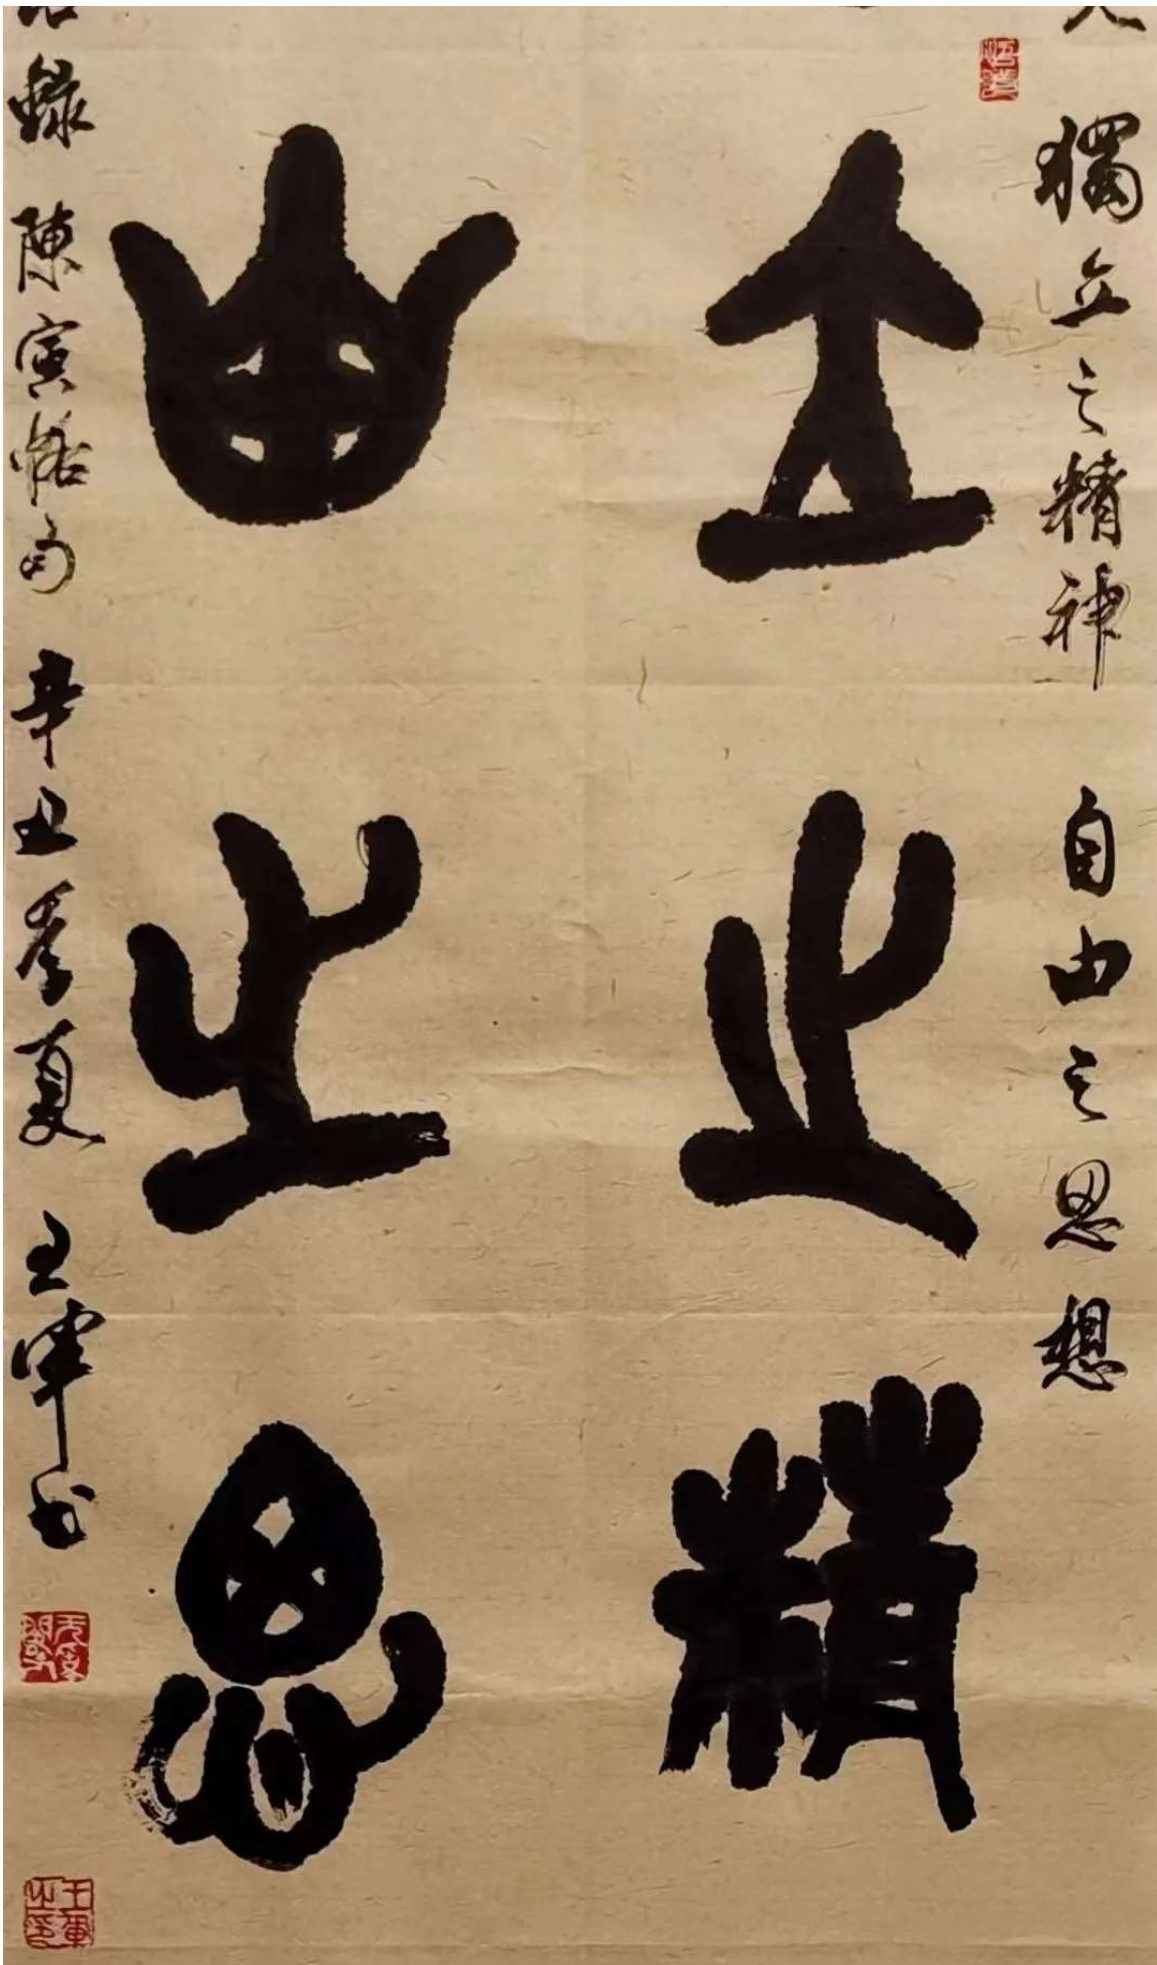 獨立之精神 自由之思想
立之精
由之思
錄 陳寅恪句 辛丑季夏 王軍书
王軍之印